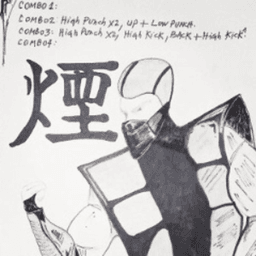 COMBO 1:
COMBO2: HIGH PUNCH X2, UP + LOW PUNCH.
COMBO3: HIGH PUNCH X2, HIGH KICK, BACK + HIGH KICK.
COMBO4:
煙